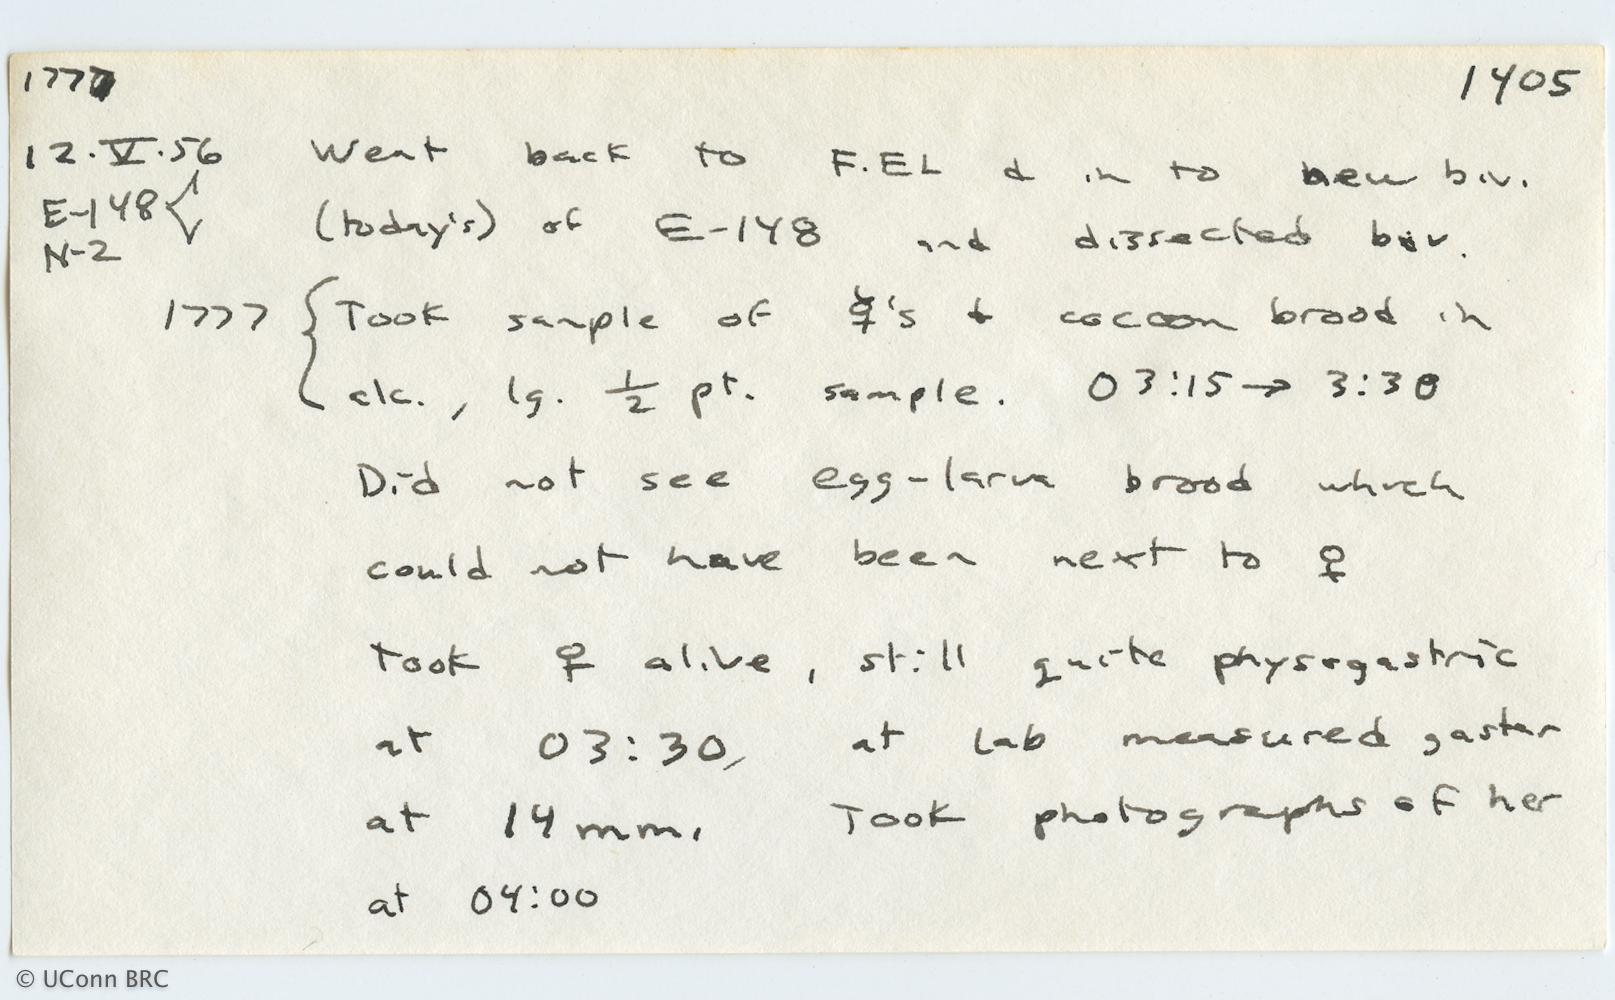 1777 1405
12.V.56 Went back to F.EL & in to new biv.
E-148 (today's) of E-148 and dissected biv.
N-2
1777 { Took sample of ☿'s & cocoon brood in
alc., lg. 1/2 pt. sample. 03:15 → 3:30
Did not see egg-larva brood which
could not have been next to ♀
Took ♀ alive, still quite physogastric
at 03:30, at Lab measured gaster
at 14 mm. Took photographs of her
at 04:00
© UConn BRC